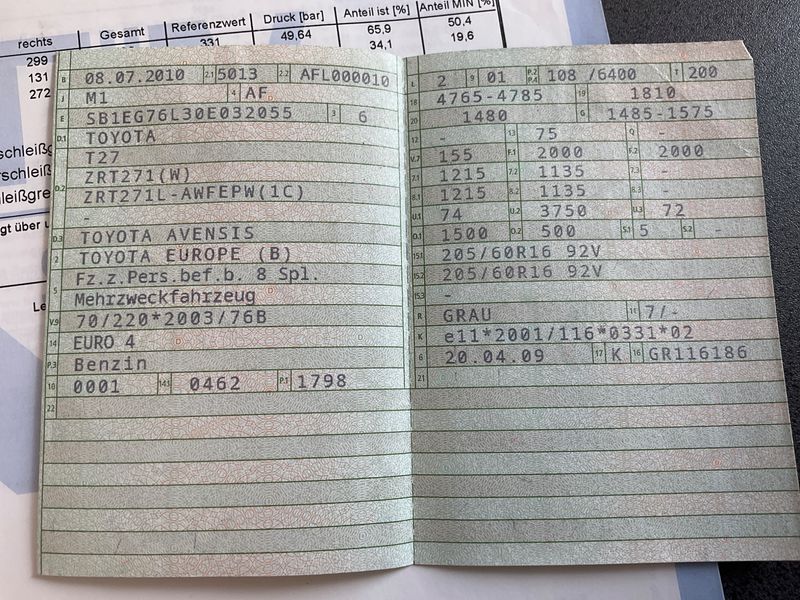 rechts Gesamt Referenzwert Druck [bar] Anteil ist [%] Anteil MIN [%]
299 331 49,64 65,9 50,4
131 34,1 19,6
272
B 08.07.2010 2.1 5013 2.2 AFL000010
J M1 4 AF
E SB1EG76L30E032055 3 6
D.1 TOYOTA
T27
D.2 ZRT271(W)
ZRT271L-AWFEPW(1C)
-
D.3 TOYOTA AVENSIS
2 TOYOTA EUROPE (B)
5 Fz.z.Pers.bef.b. 8 Spl.
Mehrzweckfahrzeug
V.9 70/220*2003/76B
14 EURO 4
P.3 Benzin
10 0001 14.1 0462 P.1 1798
22
L 2 9 01 P.2 P.4 108 /6400 T 200
18 4765-4785 19 1810
20 1480 G 1485-1575
12 - 13 75 Q -
V.7 155 F.1 2000 F.2 2000
7.1 1215 7.2 1135 7.3 -
8.1 1215 8.2 1135 8.3 -
U.1 74 U.2 3750 U.3 72
O.1 1500 O.2 500 S.1 5 S.2 -
15.1 205/60R16 92V
15.2 205/60R16 92V
15.3 -
R GRAU 11 7/-
K e11*2001/116*0331*02
6 20.04.09 17 K 16 GR116186
21